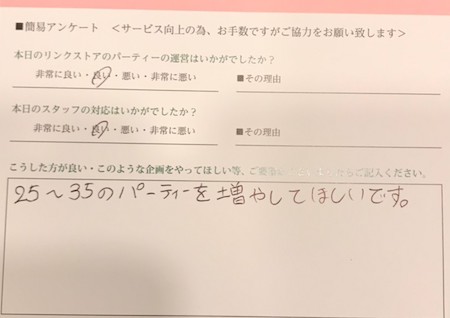 ■簡易アンケート ＜サービス向上の為、お手数ですがご協力をお願い致します＞
本日のリンクストアのパーティーの運営はいかがでしたか？
非常に良い・良い・悪い・非常に悪い ■その理由
本日のスタッフの対応はいかがでしたか？
非常に良い・良い・悪い・非常に悪い ■その理由
こうした方が良い・このような企画をやってほしい等、ご らご記入ください。
25～35のパーティーを増やしてほしいです。